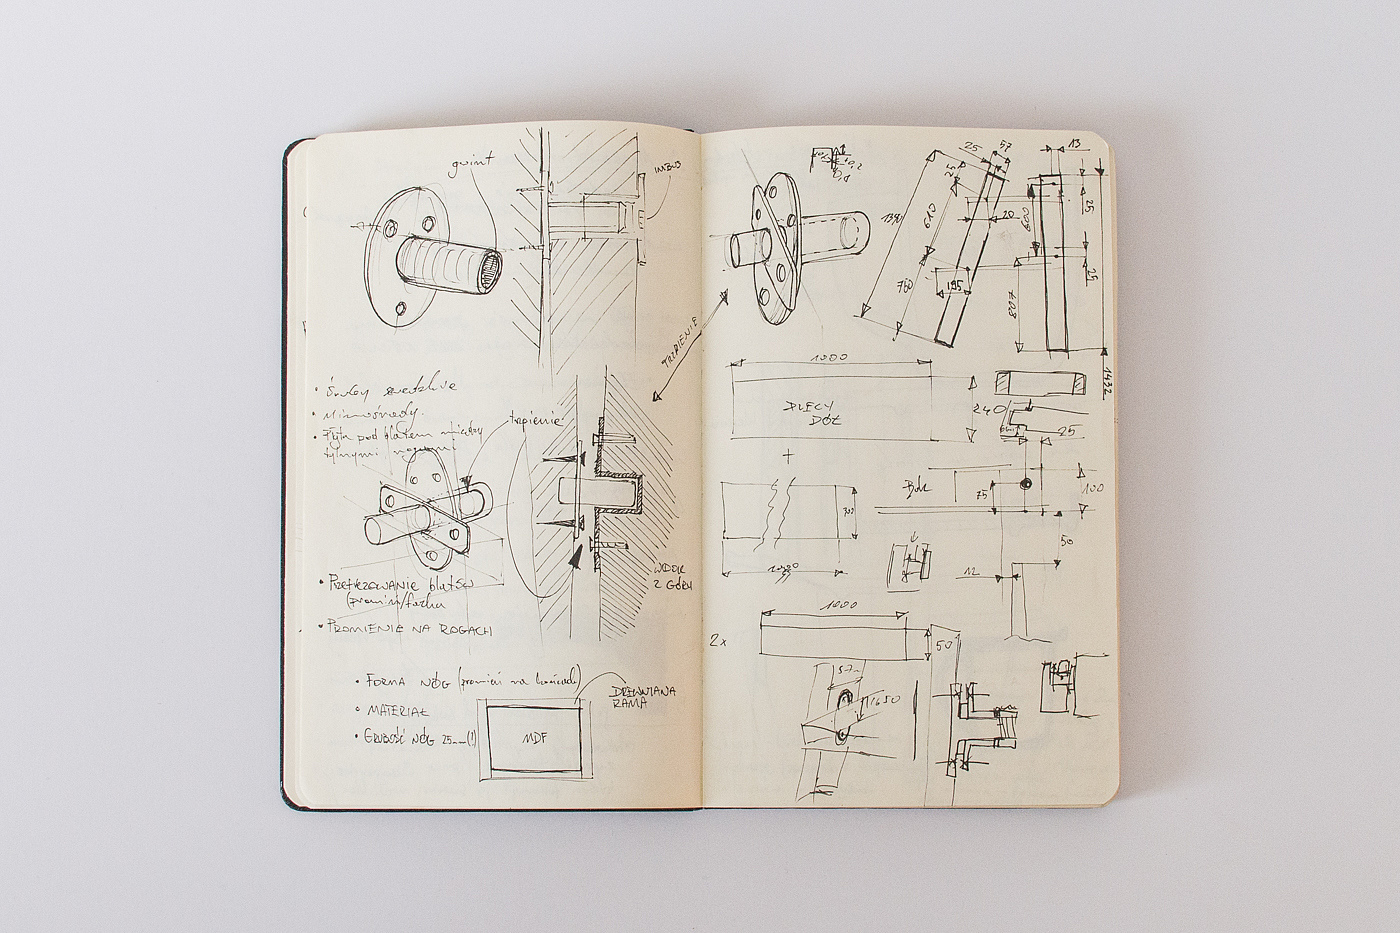 gwint
IMBUS
TRZPIENIE
• Śruby
• Mimośrody.
• Płyta pod blatem między
tylnymi nogami
trzpienie
WIDOK
Z GÓRY
• Przefrezowanie blatów
(promień/forma
• PROMIENIE NA ROGACH
• FORMA NÓG (promień na końcach)
DREWNIANA
RAMA
• MATERIAŁ
• GRUBOŚĆ NÓG 25mm(!)
MDF
25
57
13
25
1390
610
20
600
25
760
195
25
807
1432
1000
PLECY
DÓŁ
240
25
+
300
1000
Bok
75
100
50
12
2x
1000
50
57
1650